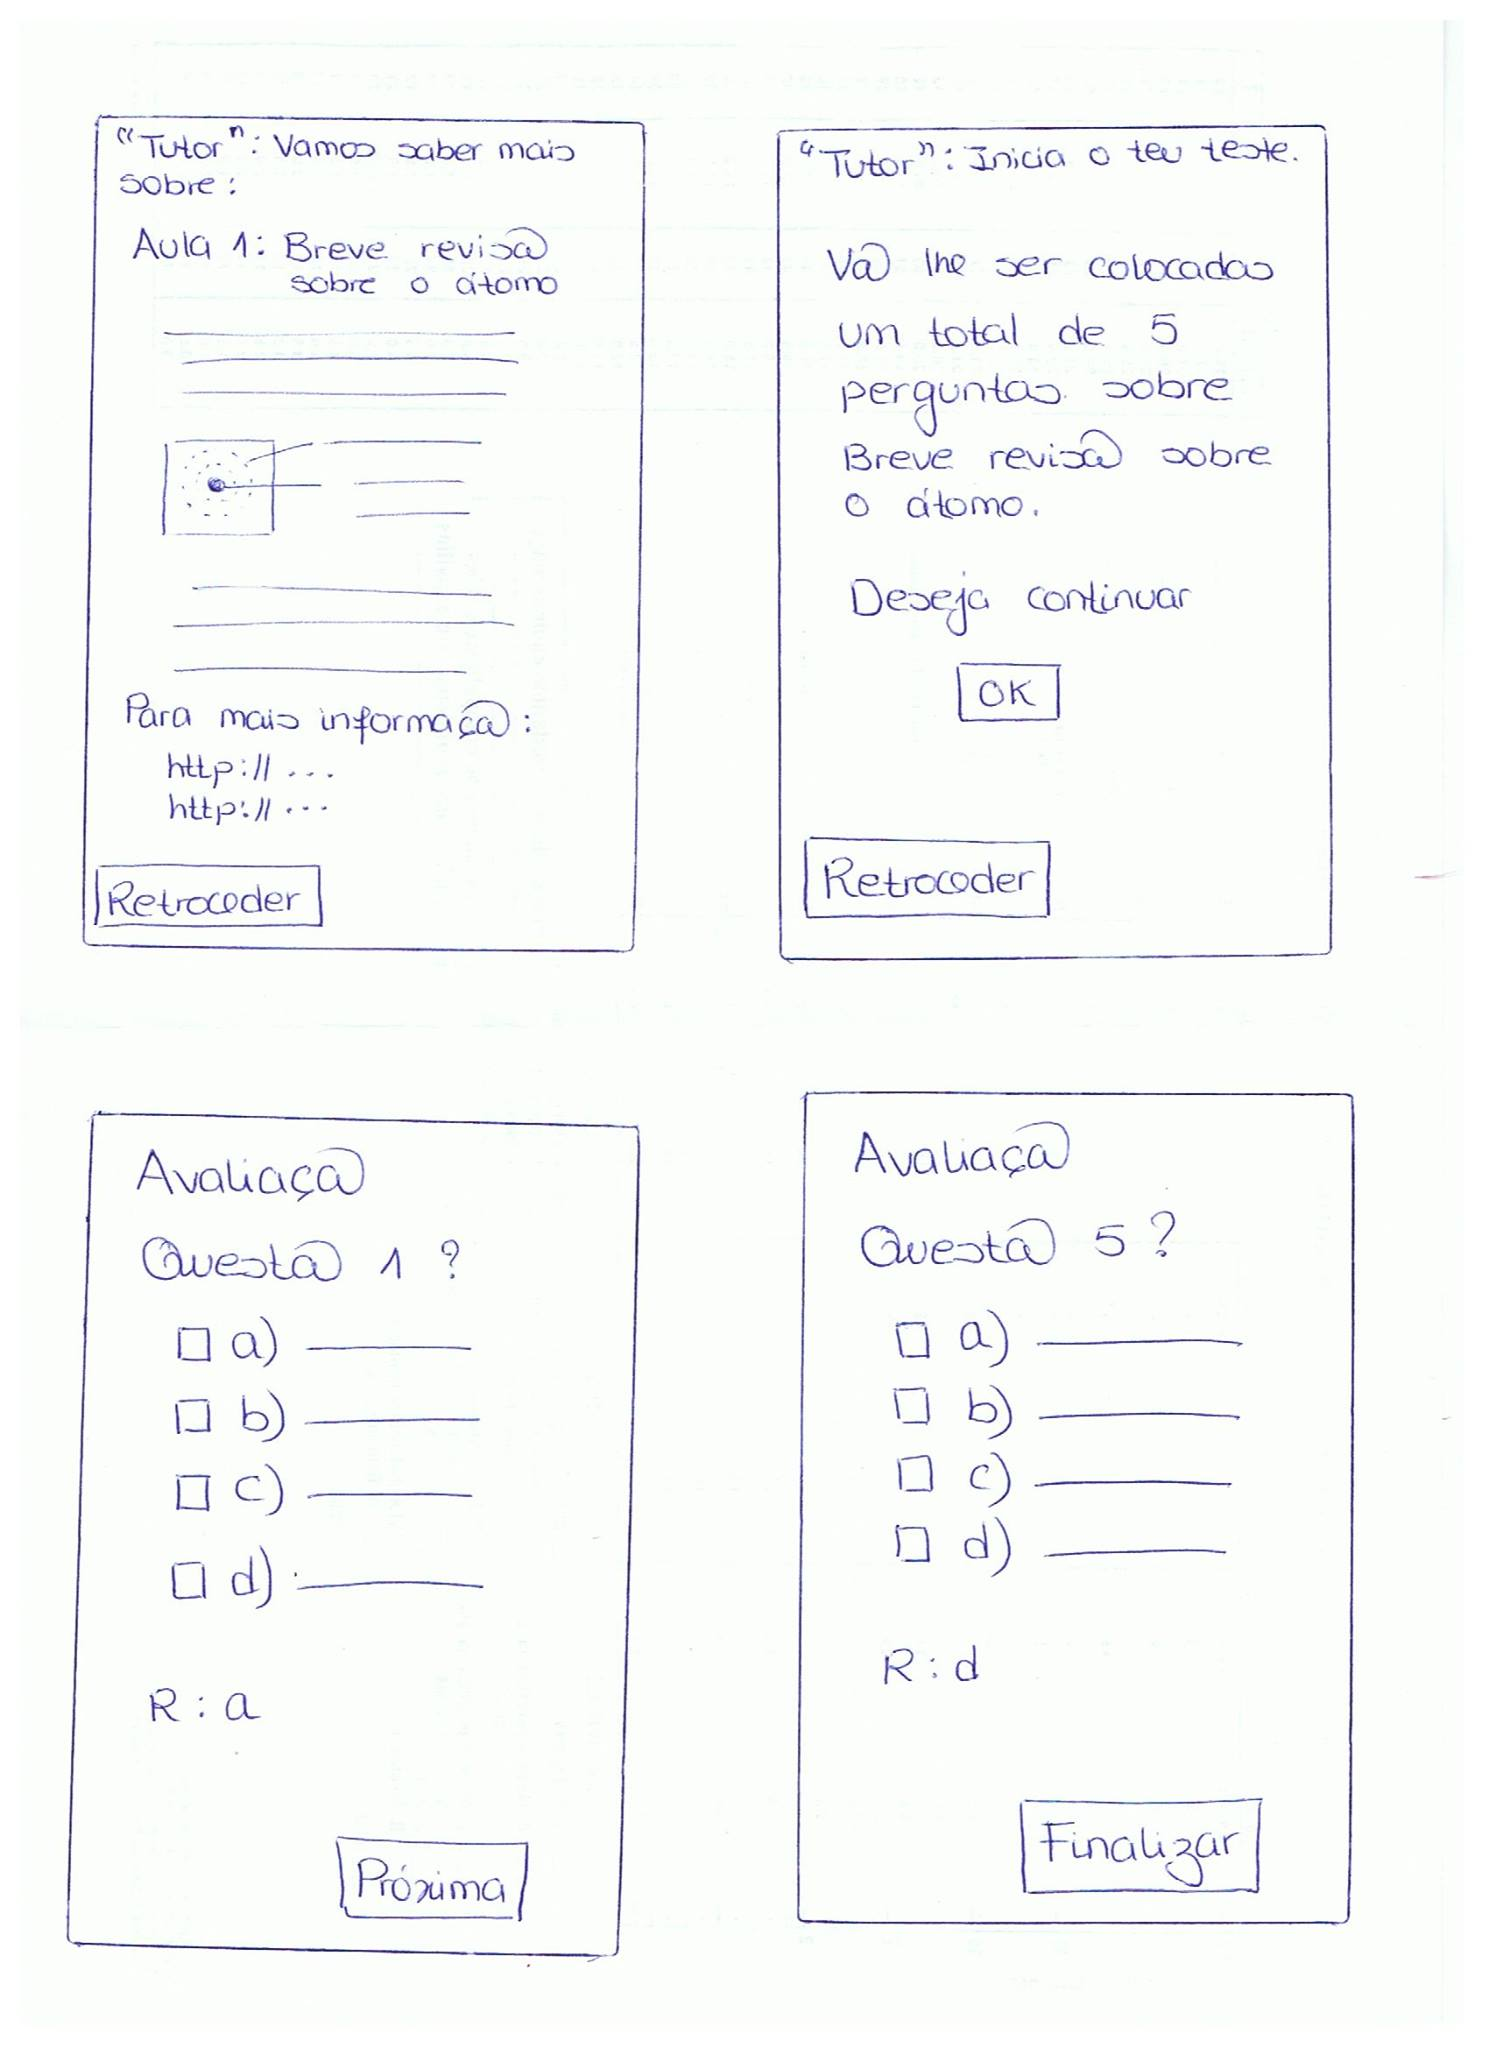 "Tutor": Vamos saber mais
sobre:
Aula 1: Breve revisão
sobre o átomo
Para mais informação:
http://...
http://...
Retroceder
"Tutor": Inicia o teu teste.
Vão lhe ser colocadas
um total de 5
perguntas sobre
Breve revisão sobre
o átomo.
Deseja continuar
OK
Retroceder
Avaliação
Questão 1?
a)
b)
c)
d)
R: a
Próxima
Avaliação
Questão 5?
a)
b)
c)
d)
R: d
Finalizar